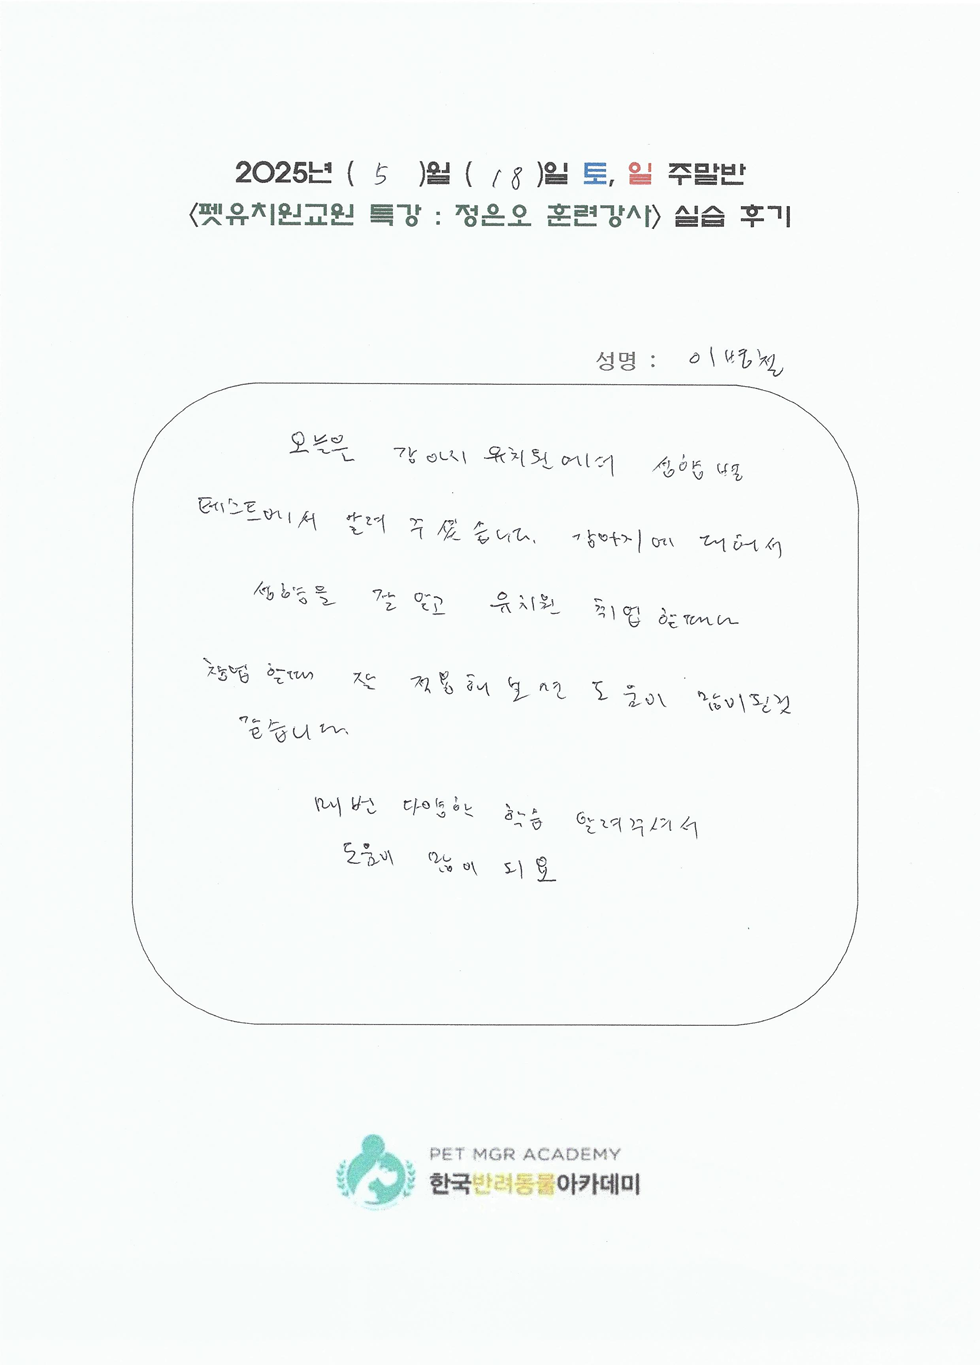 2025년 ( 5 )월 ( 18 )일 토, 일 주말반
<펫유치원교원 특강 : 정은오 훈련강사> 실습 후기
성명 : 이병철
오늘은 강아지 유치원에서 성향별
테스트에서 알려 주셨습니다. 강아지에 대해서
성향을 잘 알고 유치원 취업 할때나
창업 할때 잘 적용해 보면 도움이 많이된것
같습니다.
매번 다양한 학습 알려주셔서
도움이 많이 되요
PET MGR ACADEMY
한국반려동물아카데미